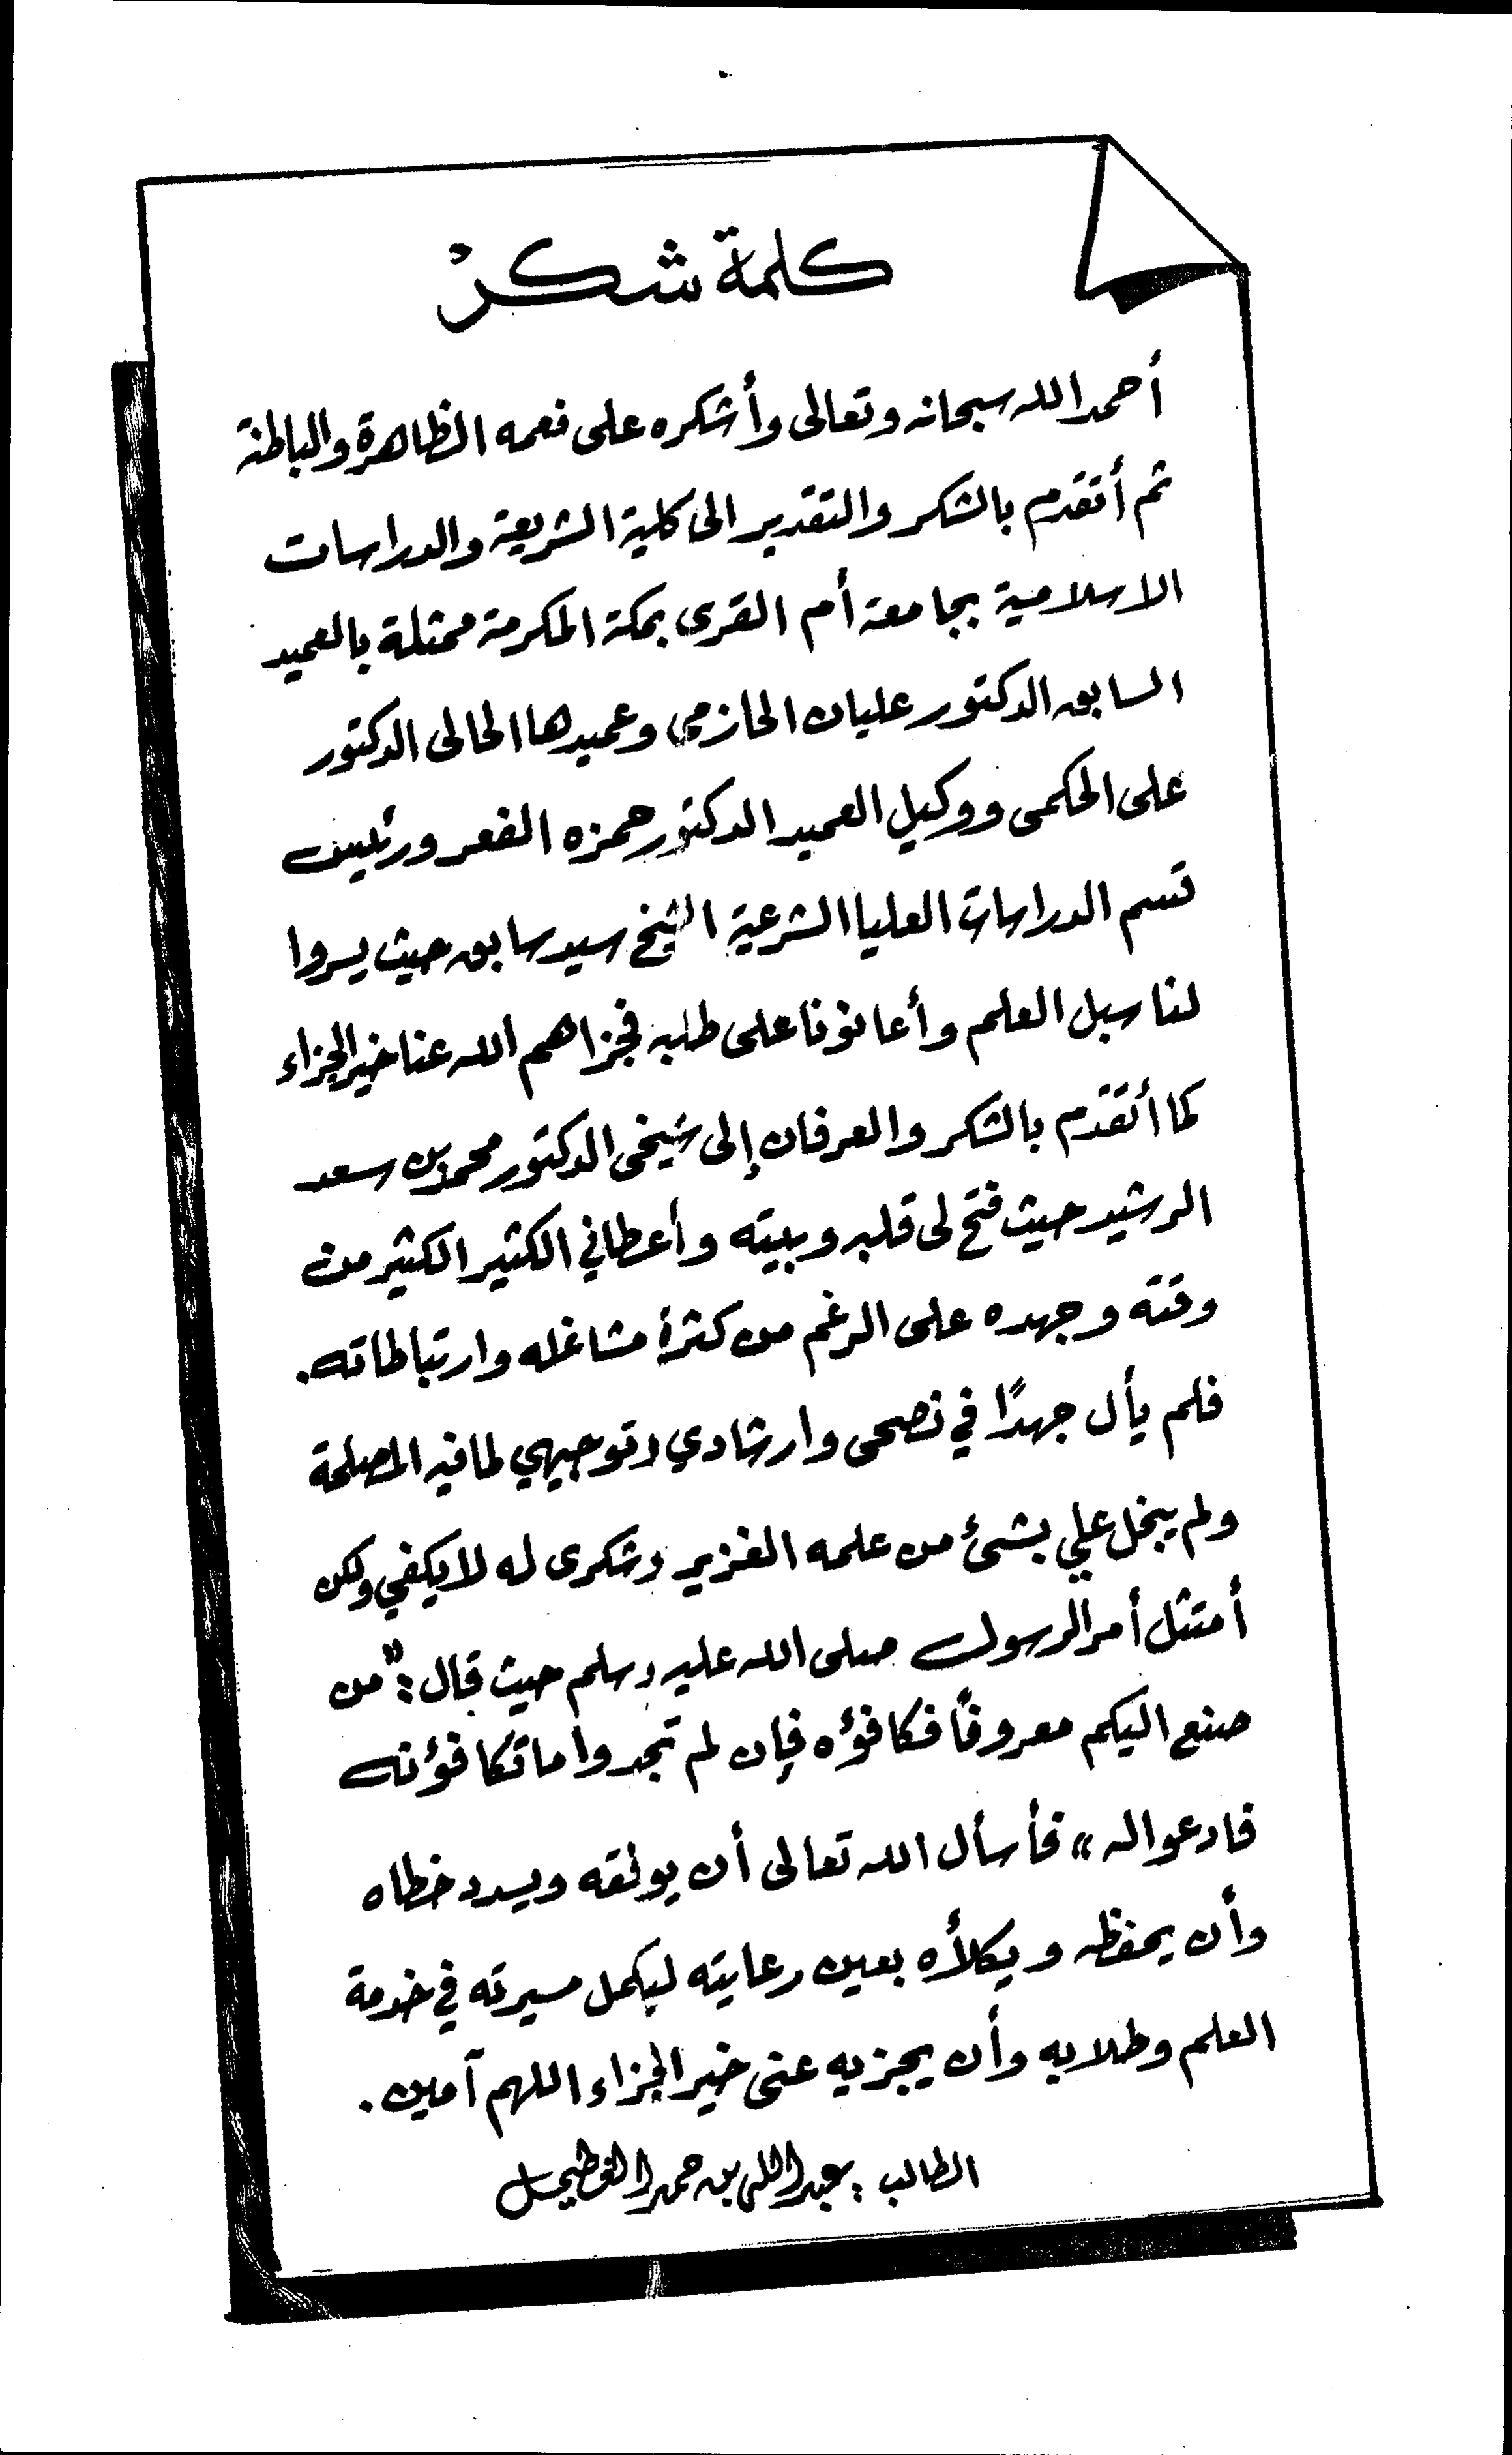 كلمة شكر
أحمد الله سبحانه وتعالى وأشكره على نعمه الظاهرة والباطنة
ثم أتقدم بالشكر والتقدير الى كلية الشريعة والدراسات
الاسلامية بجامعة أم القرى بمكة المكرمة ممثلة بالعميد
السابق الدكتور عليان الحازمي وعميدها الحالى الدكتور
على الحكمى ووكيل العميد الدكتور حمزه الفعر ورئيس
قسم الدراسات العليا الشرعية الشيخ سيد سابق حيث يسروا
لنا سبل العلم وأعانونا على طلبه فجزاهم الله عنا خير الجزاء
كما أتقدم بالشكر والعرفان إلى شيخى الدكتور محمد بن سعد
الرشيد حيث فتح لى قلبه وبيته وأعطاني الكثير الكثير من
وقته وجهده على الرغم من كثرة مشاغله وارتباطاته.
فلم يأل جهدًا في نصحى وارشادي وتوجيهي لما فيه المصلحة
ولم يبخل علي بشئ من علمه الغزير وشكرى له لا يكفي ولكن
أمتثل أمر الرسول صلى الله عليه وسلم حيث قال: "من
صنع اليكم معروفًا فكافؤه فإن لم تجدوا ما تكافؤنه
فادعوا له" فأسأل الله تعالى أن يوفقه ويسدد خطاه
وأن يحفظه ويكلأه بعين رعايته ليكمل مسيرته في خدمة
العلم وطلابه وأن يجزيه عنى خير الجزاء اللهم آمين.
الطالب: عبد الله بن حمد الغطيمل